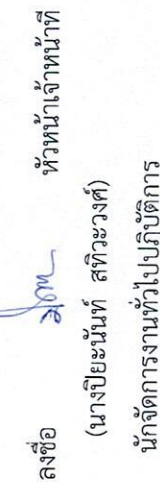 ลงชื่อ หัวหน้าเจ้าหน้าที่
(นางปิยะนันท์ สทิวะวงศ์)
นักจัดการงานทั่วไปปฏิบัติการ